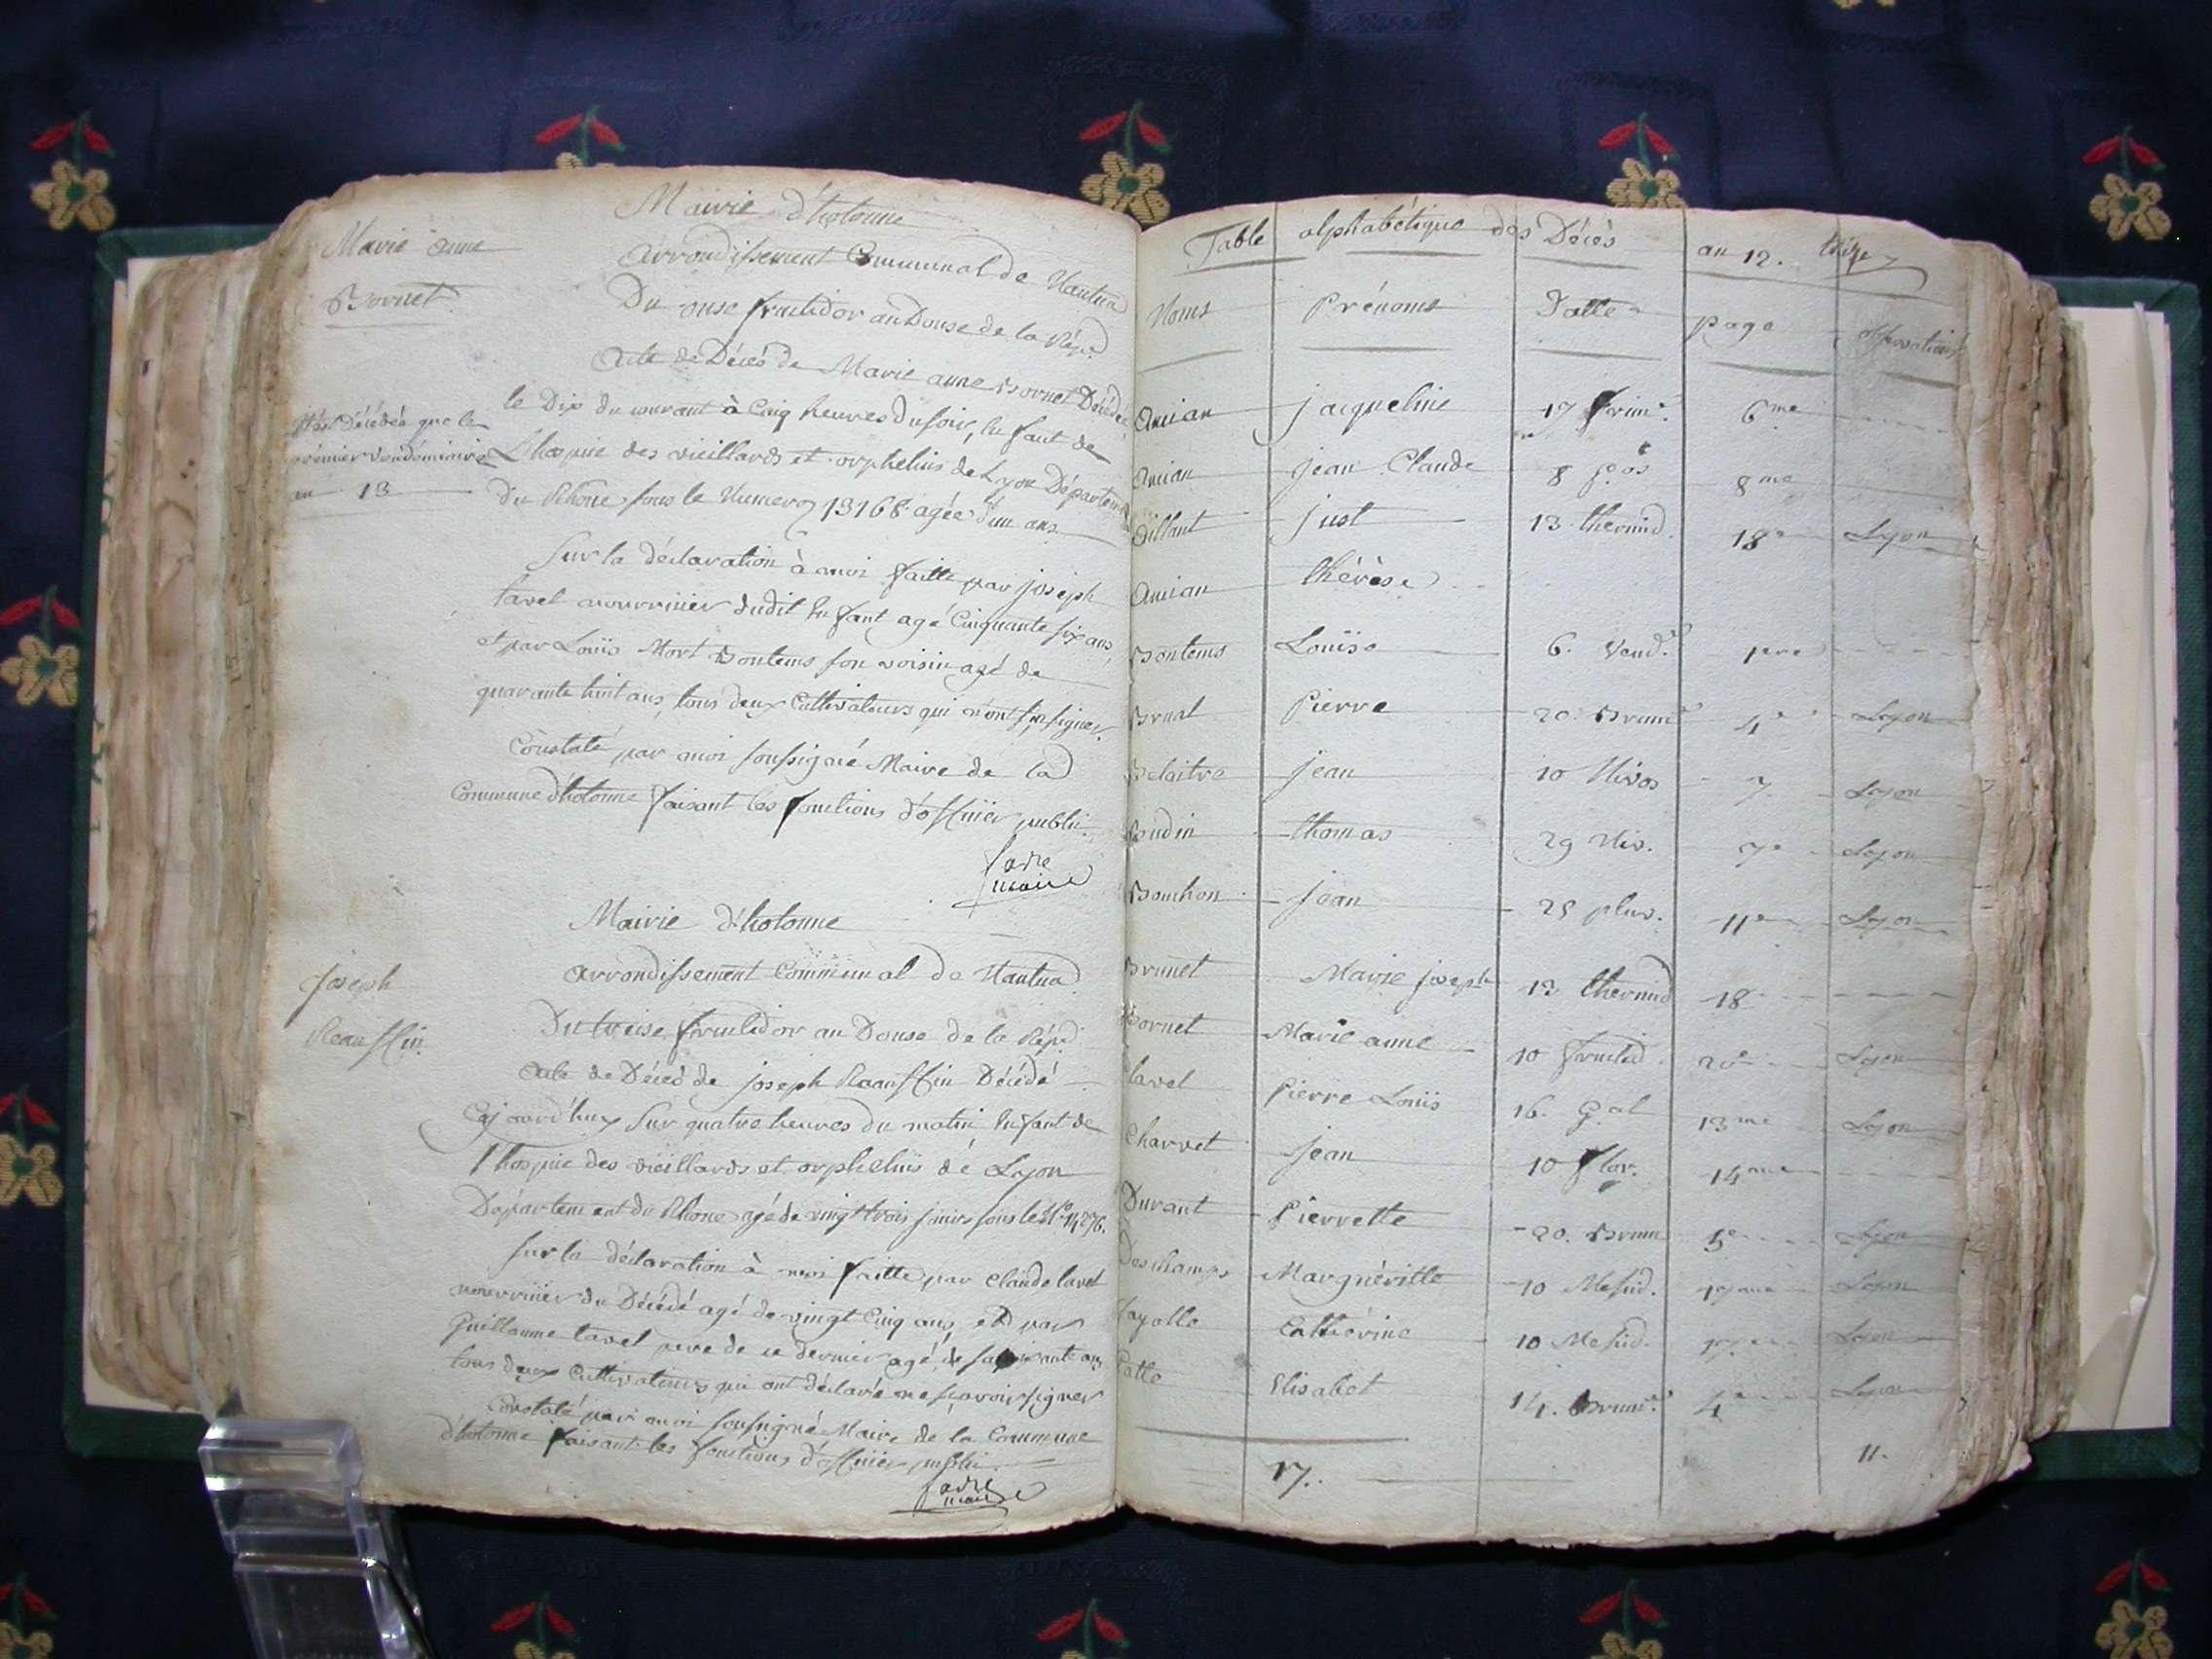 Mairie d'hotonne
Marie anne
Bornet
arrondissement Communal de Nantua
Du onse fructidor an Douse de la Rép.
Acte de Décès de Marie anne Bornet Décédée
le Dix du courant à Cinq heures du soir, Enfant de
L'hospice des vieillards et orphelins de Lyon Département
du Rhône sous le Numero 13168 agée d'un ans
n'est Décédée que le
prémier vendémiaire
an 13
Sur la déclaration à moi faitte par joseph
tavel nourricier dudit Enfant agé Cinquante six ans,
et par Louis Mort Bontems son voisin agé de
quarante huit ans, tous deux Cultivateurs qui n'ont su signer.
Constaté par moi soussigné Maire de la
Commune d'hotonne faisant les fonctions d'officier public.
maire
Mairie d'hotonne
Joseph
arrondissement Communal de Nantua
Du treise fructidor an Douse de la Rép.
Acte de Décès de joseph Décédé
Cejourd'huy sur quatre heures du matin Enfant de
l'hospice des vieillards et orphelins de Lyon
Département du Rhone agé de vingt trois jours sous le N.o 14276.
sur la déclaration à moi faitte par claude tavel
nourricier du Décédé agé de vingt Cinq ans, et par
Guillaume tavel pere de ce dernier agé de soixante ans
tous deux Cultivateurs qui ont déclaré ne scavoir signer
Constaté par moi soussigné Maire de la Commune
d'hotonne faisant les fonctions d'officier public.
maire
Table alphabétique des Décès an 12. treize
Noms Prénoms Datte page observations
Amian jacqueline 17 frim.e 6.me
Amian jean Claude 8 8me
Billant just 13 thermid. 18e Lyon
Amian thérèse
Bontems Louise 6. Vend.e 1ere
Brual Pierre 20. Brum.e 4e Lyon
Belaitre jean 10 Nivos 7 Lyon
Budin thomas 29 Niv. 7e Lyon
Bouchon jean 25 pluv. 11e Lyon
Brunet Marie joseph 13 thermid 18
Bornet Marie anne 10 fructid. 20e Lyon
Clavel Pierre Louis 16. G.al 13me Lyon
Charvet jean 10 flor. 14me
Durant Pierrette 20. Brum 5e Lyon
Deschamps Margueritte 10 Messid. 17me Lyon
fayolle Cathérine 10 Messid. 17e Lyon
Elisabet 14. Brum.e 4e Lyon
17. 11.